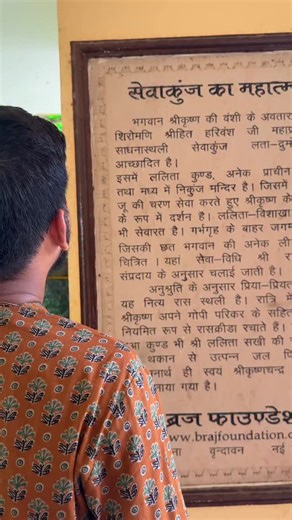 सेवाकुंज का महात्म
भगवान श्रीकृष्ण की वंशी के अवतार
शिरोमणि श्रीहित हरिवंश जी महाप्र
साधनास्थली सेवाकुंज लता-द्रुम
आच्छादित है।
इसमें ललिता कुण्ड, अनेक प्राचीन
तथा मध्य में निकुंज मन्दिर है। जिसमें
जू की चरण सेवा करते हुए श्रीकृष्ण के
के रूप में दर्शन है। ललिता-विशाखा
भी सेवारत है। गर्भगृह के बाहर जगम
जिसकी छत भगवान की अनेक ली
चित्रित । यहां सेवा-विधि श्री रा
संप्रदाय के अनुसार चलाई जाती है।
अनुश्रुति के अनुसार प्रिया-प्रियत
यह नित्य रास स्थली है। रात्रि में
श्रीकृष्ण अपने गोपी परिकर के सहित
नियमित रूप से रासक्रीडा रचाते हैं।
आ कुण्ड भी श्री ललिता सखी की
थकान से उत्पन्न जल पि
नार्थ ही स्वयं श्रीकृष्णचन्द्र
नाया गया है।
ब्रज फाउण्डेश
www.brajfoundation.o
ना वृन्दावन नई